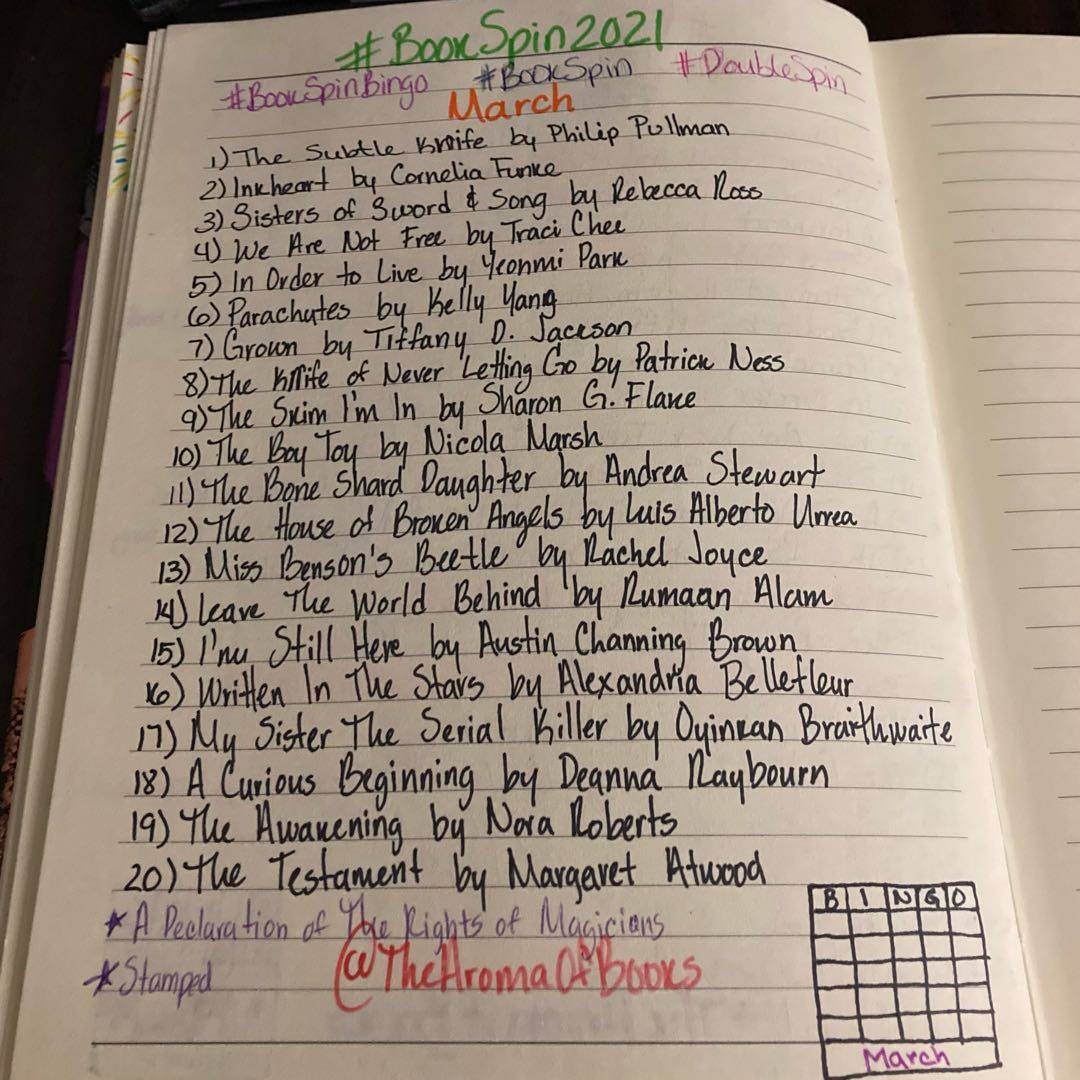 #BookSpin2021
#BookSpinBingo #BookSpin #DoubleSpin
March
1) The Subtle Knife by Philip Pullman
2) Inkheart by Cornelia Funke
3) Sisters of Sword & Song by Rebecca Ross
4) We Are Not Free by Traci Chee
5) In Order to Live by Yeonmi Park
6) Parachutes by Kelly Yang
7) Grown by Tiffany D. Jackson
8) The Knife of Never Letting Go by Patrick Ness
9) The Skim I'm In by Sharon G. Flake
10) The Boy Toy by Nicola Marsh
11) The Bone Shard Daughter by Andrea Stewart
12) The House of Broken Angels by Luis Alberto Urrea
13) Miss Benson's Beetle by Rachel Joyce
14) Leave The World Behind by Rumaan Alam
15) I'm Still Here by Austin Channing Brown
16) Written In The Stars by Alexandria Bellefleur
17) My Sister The Serial Killer by Oyinkan Braithwaite
18) A Curious Beginning by Deanna Raybourn
19) The Awakening by Nora Roberts
20) The Testament by Margaret Atwood
* A Declaration of The Rights of Magicians
* Stamped @TheAromaOfBooks
B I N G O
March